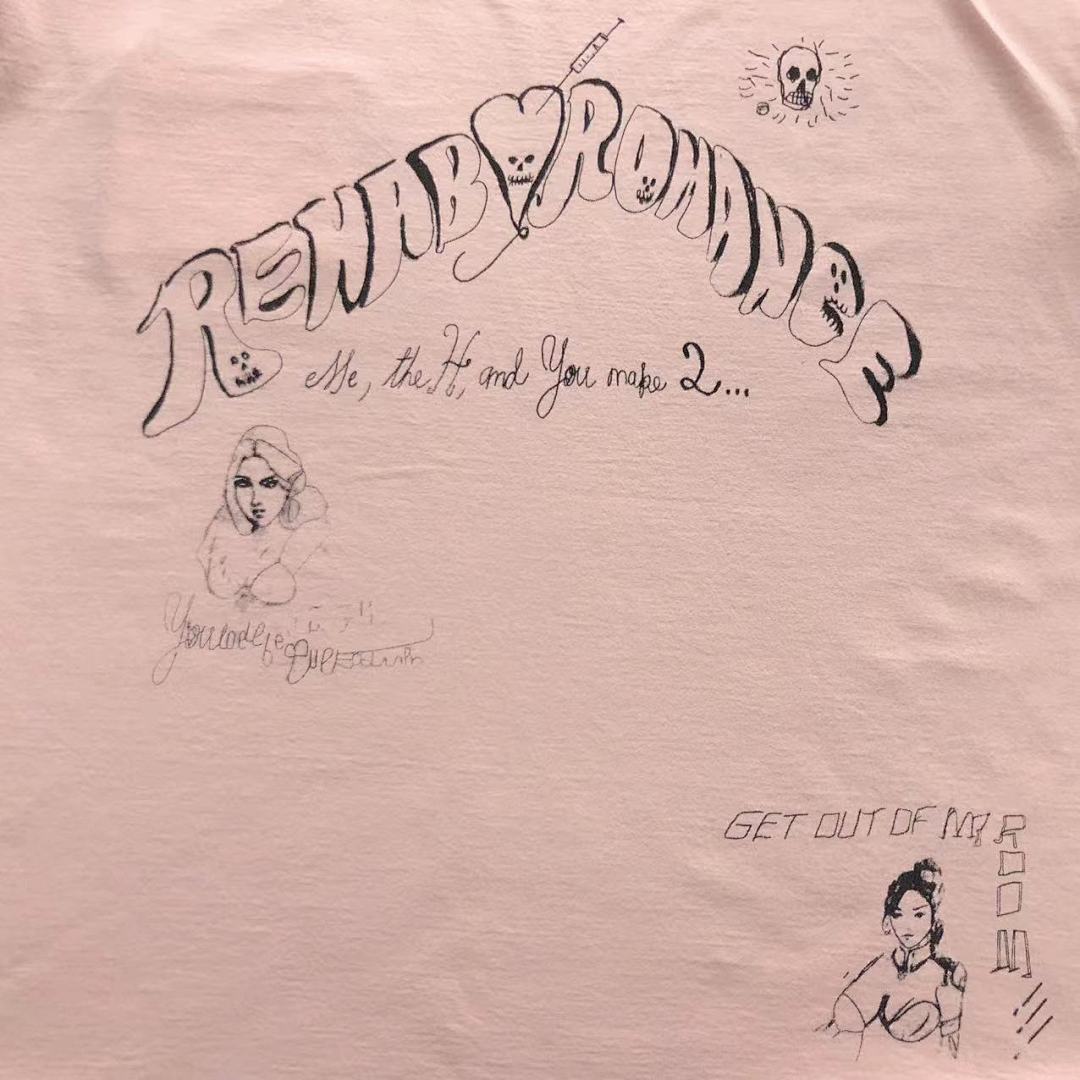 REHAB ROMANCE
Me, the H, and You make 2...
GET OUT OF MY
ROOM!!!